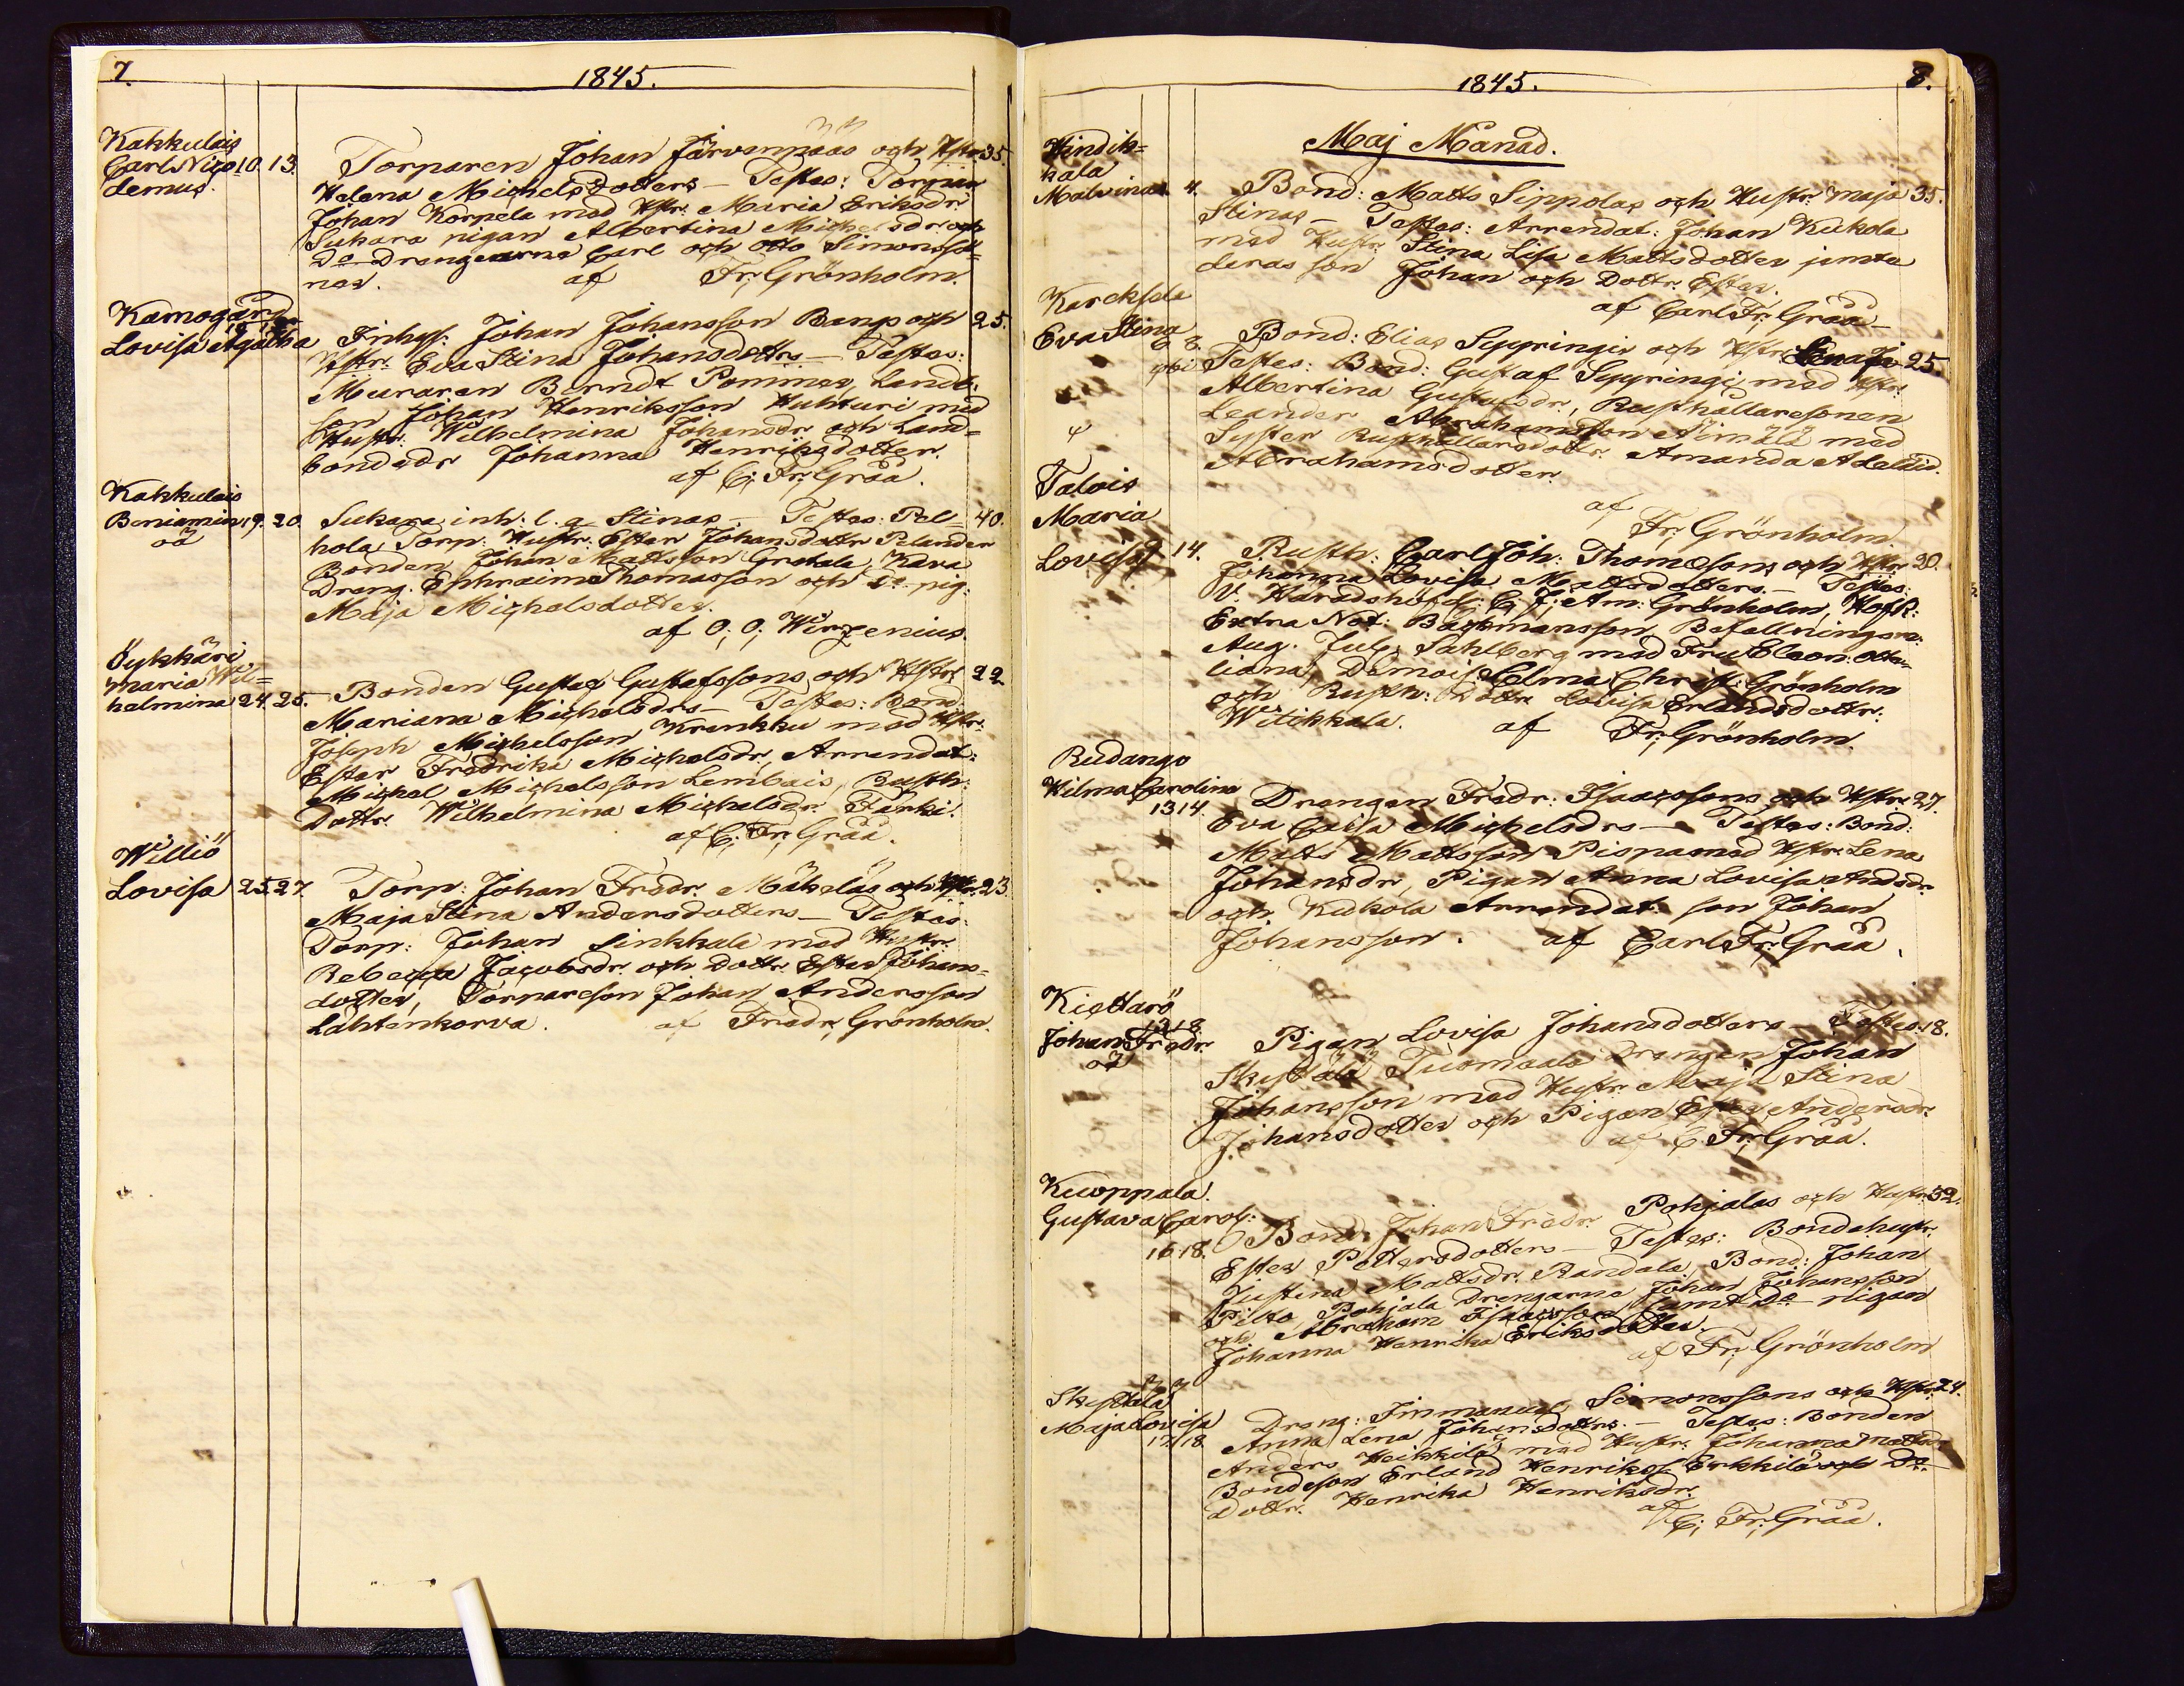 7.
1845.
Kakkulais
Carl Nico= 10. 13.
demus.
Torparen Johan Järvenpääs och Hstr 35.
Helena Michelsdotters – Testes: Torpar
Johan Korpela med Hstr. Maria Eriksdr
Sukara pigan Albertina Michelsdr och
Do Drengarne Carl och Otto Simonssö=
ner. af Fr. Grönholm.
Kamogård
Lovisa Agatha
Inhys: Johan Johansson Bangs och 25.
Hstr. Eva Stina Johansdottrs – Testes:
Muraren Berndt Pommer, Landb.
son Johan Henriksson Huhturi med
Hustr. Wilhelmina Johansdr och Land=
bondedr Johanna Henriksdotter.
af C. Fr. Gråå.
Kakkulais
Beniamin 19. 20.
oä
Sukara inh: l. q. Stinas – Testes: Pel= 40.
hola Torp: Hustr. Ester Johansdottr Pelander
Bonden Johan Mattsson Grotula, Kara
Dreng. Ephraim Thomasson och do pig.
Maja Michelsdotter.
af O. O. Wirzenius.
Öykkäri
Maria Wil=
helmina 24. 25.
Bonden Gustaf Gustafssons och Hstr 22
Mariana Michelsdrs – Testes: Bond.
Joseph Michelsson Krenkku med Hstr.
Ester Fredrika Michelsdr, Arrendat:
Michel Michelsson Lembois, Rusth:
Dottr. Wilhelmina Michelsdr Ferki.
af C. Fr. Gråå.
Williö
Lovisa 25. 27.
Torp: Johan Fredr. Mäkeläs och Hstr. 23.
Maja Stina Andersdotters – Testes:
Torp: Johan Sinkkala med Hustr.
Rebecca Jacobsdr. och Dottr. Ester Johans=
dotter, Torpareson Johan Andersson
Lähtenkorva. af Fredr. Grönholm.
1845.
8.
Maj Månad.
Hindik=
kala
Malvina 4.
Bond: Matts Sippolas och Hustr. Maja 35.
Stinas – Testes: Arrendat: Johan Kukola
med Hustr. Stina Lisa Mattsdotter jemte
deras son Johan och Dottr. Ester.
af Carl Fr. Gråå
Karcksela
Eva Stina
Bond: Elias Sypringis och Hstr. 25.
Testes: Bond: Gustaf Sypringi med Hstr.
Albertina Gustavsdr, Rusthållaresonen
Leander Abrahamsson Äimälä med
Syster Rusthållaredottr. Amanda Adelaid.
Abrahamsdotter.
af
Fr. Grönholm.
Talois
Maria
Lovisa 9 14.
Rusth: Carl Joh: Thomæsons och Hstr 20.
Johanna Lovisa Mattsdotters – Testes:
V. Häradshöfd: C. J. Am: Grönholm, Hofr:
Extra Not: Backmansson Befallningsm.
Aug. Jul. Sahlberg med Fru Eleon: Otte=
liana, Demois: Selma Christ: Grönholm
och Rusth: dottr Lovisa Erlandsdottr.
Witikkala. af Fr. Grönholm.
Rudango
Wilma Carolina
13 14.
Drengen Fredr: Isaacssons och Hstr 27.
Eva Caisa Michelsdrs – Testes: Bond:
Matts Mattsson Pispa med Hstr. Lena
Johansdr, Pigan Anna Lovisa Andsdr.
och Kukola Arrendat. son Johan
Johansson. af Carl Fr. Gråå.
Kiettarö
12 18
Johan Fredr.
oä
Pigan Lovisa Johansdotters – Testes: 18.
Skyttälä Tuomaala Drengen Johan
Johansson med Hustr. Maja Stina
Johansdotter och Pigan Ester Andersdr.
af C. Fr. Gråå.
Kuoppala.
Gustava Carol:
16 18.
Bond. Johan Fredr. Pohjalas och Hustr. 32.
Ester Pettersdotters – Testes: Bondehustr.
Justina Mattsdr. Randala, Bond: Johan
Pilto, Pohjala Drengarna Johan Johansson
och Abraham Isaacsson samt Do pigan
Johanna Henrika Eriksdotter.
af Fr. Grönholm
Skyttälä
Maja Lovisa
17 18
Dreng: Immanuel Simonssons och Hstr. 24.
Anna Lena Johansdottrs. – Testes: Bonden
Anders Heikkilä med Hustr. Johanna Mattsdr
Bondeson Erland Henriks. Erkkilä och Do
dottr. Henrika Henriksdr.
af
C. Fr. Gråå.